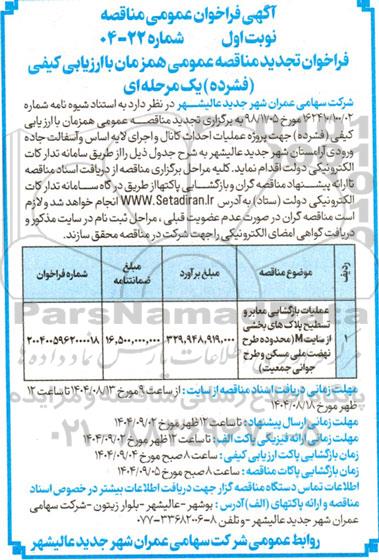 آگهی فراخوان عمومی مناقصه
نوبت اول شماره ۲۲-۰۴
فراخوان تجدید مناقصه عمومی همزمان با ارزیابی کیفی
(فشرده) یک مرحله ای
شرکت سهامی عمران شهر جدید عالیشهر در نظر دارد به استناد شیوه نامه شماره
مورخ ۹۸/۱۷۰۵ به برگزاری تجدید مناقصه عمومی همزمان با ارزیابی
کیفی (فشرده) جهت پروژه عملیات احداث کانال و اجرای لایه اساس و آسفالت جاده
ورودی آرامستان شهر جدید عالیشهر به شرح جدول ذیل را از طریق سامانه تدارکات
الکترونیکی دولت اقدام نماید. کلیه مراحل برگزاری مناقصه از دریافت اسناد مناقصه
تا ارائه پیشنهاد مناقصه گران و بازگشایی پاکتها از طریق درگاه سامانه تدارکات
الکترونیکی دولت (ستاد) به آدرس WWW.Setadiran.ir انجام خواهد شد و لازم
است مناقصه گران در صورت عدم عضویت قبلی ، مراحل ثبت نام در سایت مذکور و
دریافت گواهی امضای الکترونیکی را جهت شرکت در مناقصه محقق سازند.
ردیف موضوع مناقصه مبلغ برآورد مبلغ ضمانتنامه شماره فراخوان
۱ عملیات بازگشایی معابر و
تسطیح پلاک های بخشی
از سایت M (محدوده طرح
نهضت ملی مسکن و طرح
جوانی جمعیت)
۳۲۹,۹۴۸,۹۱۹,۰۰۰ ۱۶,۵۰۰,۰۰۰,۰۰۰ ۲۰۰۴۰۰۵۹۶۲۰۰۰۰۱۸
مهلت زمانی دریافت اسناد مناقصه از سایت : از ساعت ۹ مورخ ۱۴۰۴/۰۸/۱۳ تا ساعت ۱۲
ظهر مورخ ۱۴۰۴/۰۸/۱۸
مهلت زمانی ارسال پیشنهاد : تا ساعت ۱۲ ظهر مورخ ۱۴۰۴/۰۹/۰۲
مهلت زمانی ارائه فیزیکی پاکت الف : تا ساعت ۱۲ ظهر مورخ ۱۴۰۴/۰۹/۰۲
زمان بازگشایی پاکت ارزیابی کیفی : ساعت ۸ صبح مورخ ۱۴۰۴/۰۹/۰۴
زمان بازگشایی پاکات مناقصه : ساعت ۸ صبح مورخ ۱۴۰۴/۰۹/۰۵
اطلاعات تماس دستگاه مناقصه گزار جهت دریافت اطلاعات بیشتر در خصوص اسناد
مناقصه و ارائه پاکتهای (الف) آدرس : بوشهر - عالیشهر - بلوار زیتون - شرکت سهامی
عمران شهر جدید عالیشهر - و تلفن ۸-۳۳۶۸۲۰۰۶-۰۷۷
روابط عمومی شرکت سهامی عمران شهر جدید عالیشهر